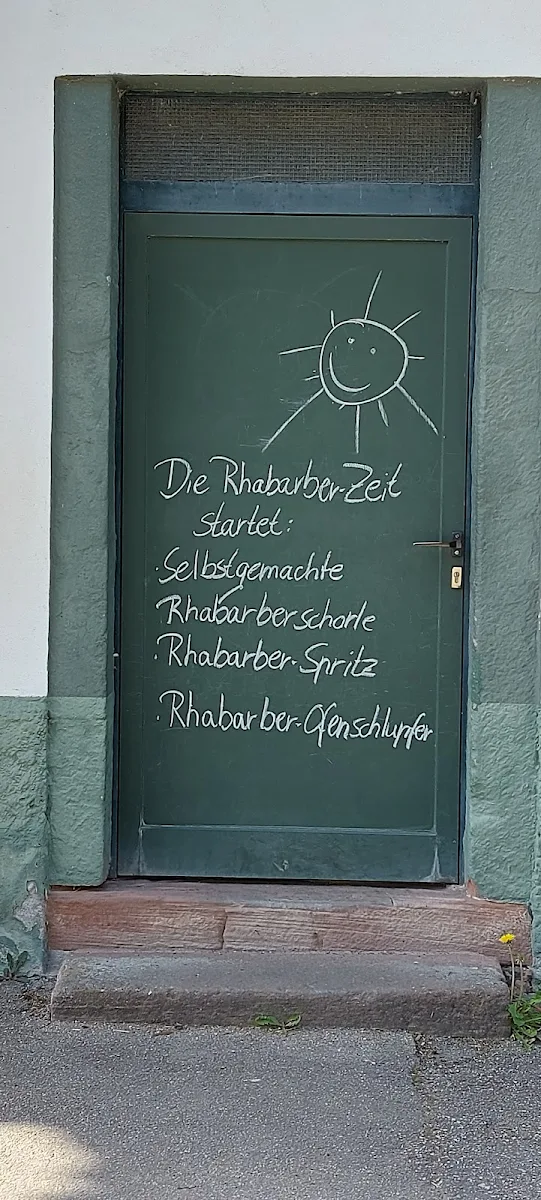 Die Rhabarber-Zeit
startet:
· Selbstgemachte
Rhabarberschorle
· Rhabarber-Spritz
· Rhabarber-Ofenschlupfer